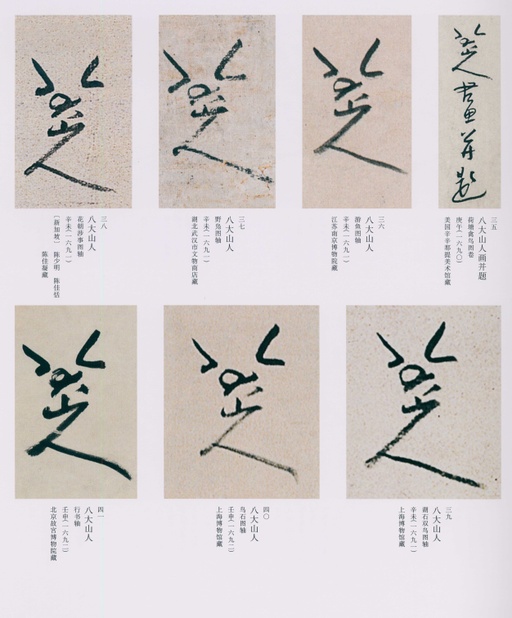 八大山人畫并題
三五
八大山人画并题
荷塘禽鸟图卷
庚午(一六九〇)
美国辛辛那提美术馆藏
八大山人
三六
八大山人
游鱼图轴
辛未(一六九一)
江苏南京博物院藏
八大山人
三七
八大山人
野凫图轴
辛未(一六九一)
湖北武汉市文物商店藏
八大山人
三八
八大山人
图轴
辛未(一六九一)
〔新加坡〕 陈少明 陈佳恬
陈佳凝藏
八大山人
三九
八大山人
湖石双鸟图轴
辛未(一六九一)
上海博物馆藏
八大山人
四〇
八大山人
鸟石图轴
壬申(一六九二)
上海博物馆藏
八大山人
四一
八大山人
行书轴
壬申(一六九二)
北京故宫博物院藏